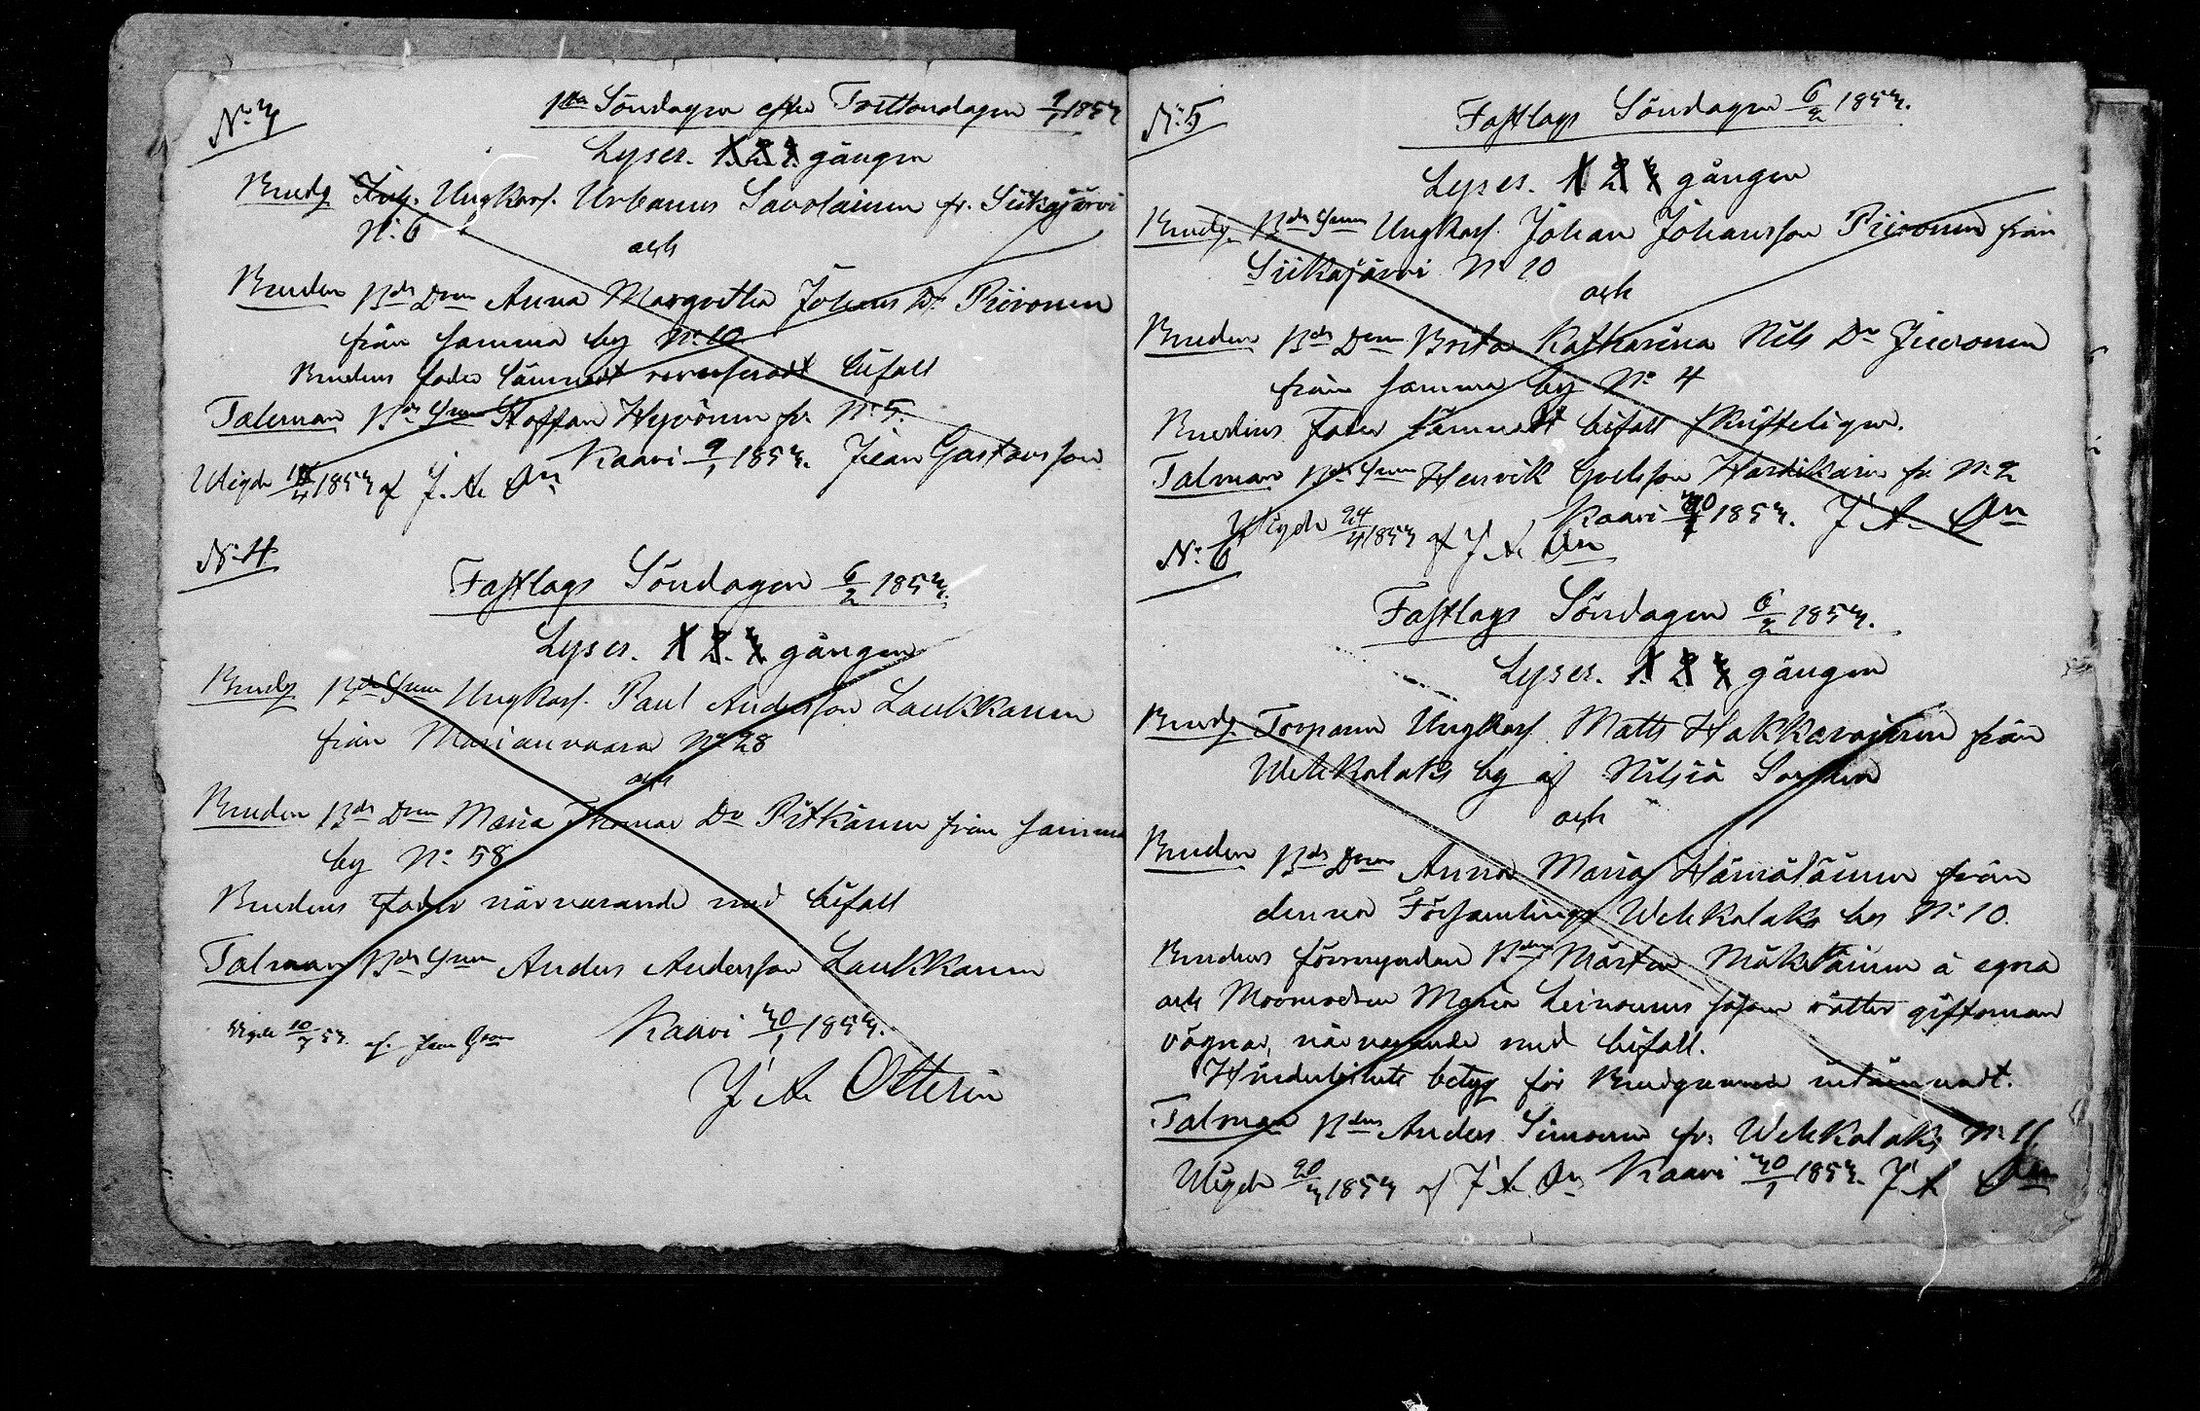 N:o 3
1sta Söndagen efter Trettondagen 9/1 1853
Lyses. 1. 2. 3. gången
Brudg. Inh. Ungkarl. Urbanus Savolainen fr. Siikajärvi
N:o 6
och
Bruden Bde Dtrn Anna Margretha Johans Dr Piironen
från samma by N:o 10
Brudens fader lämnadt bifall
Taleman Bde Snen Staffan Hyvönen fr. N:o 5.
Kaavi 9/1 1853. Jean Gustavsson
Wigde 1853 af J. A. On
N:o 4.
Fastlags Söndagen 6/2 1853.
Lyses. 1 2. 3. gången
Brudg Bde Snen Ungkarl. Paul Andersson Laukkanen
från Marianvaara N:o 28
och
Bruden Bde Dtrn Maria Thomas Dr Pitkänen från samma
by N:o 58
Brudens Fader närvarande med bifall
Talman Bde Snen Anders Andersson Laukkanen
Kaavi 30/1 1853.
Wigde 10/7 53. af.
J. A. Ottelin
N:o 5
Fastlags Söndagen 6/2 1853.
Lyses. 1 2 3 gången
Brudg. Bde Snen Ungkarl. Johan Johansson Piironen från
Siikajärvi N:o 10
och
Bruden Bde Dtrn Brita Katharina Nils Dr Jieronen
från samma by N:o 4
Brudens Fader lämnadt bifall skrifteligen.
Talman Bde Snen Henrik Hartikain fr. N:o 2
Kaavi 30/1 1853. J. A. On
Wigde 24/4 1853 af J. A. On
N:o 6
Fastlags Söndagen 6/2 1853.
Lyses. 1. 2 3 gången
Brudg. Torparen Ungkarl. Matts Hakkarainen från
Wehkalaks by af Nilsiä Socken
och
Bruden Bde Dtrn Anna Maria Hämäläinen från
denna Församlings Wehkalaks by N:o 10.
Brudens förmyndare Bden Mårten Mäkäinen å egna
och Moormodren Maria Leinonens såsom rätter giftoman
vägnar, närvarande med bifall.
Hinderlöshets betyg för Brudgummen inlämnadt.
Talman Bden Anders Simonen fr. Wehkalaks N:o 11
Wigde 20/3 1853 af J. A. On Kaavi 30/1 1853. J. A. On